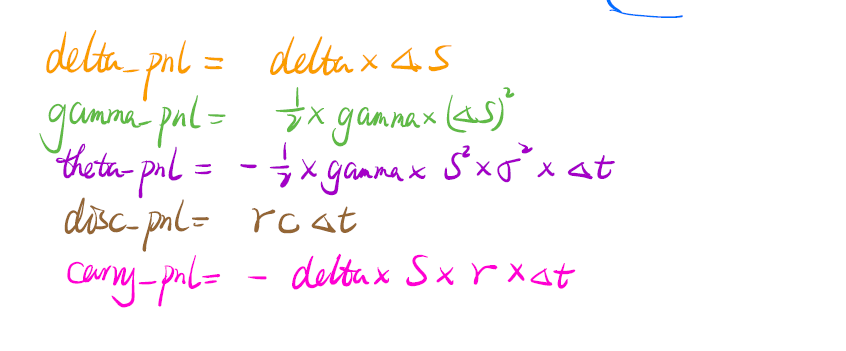 delta_pnl = delta × ΔS
gamma_pnl = 1/2 × gamma × (ΔS)²
theta_pnl = - 1/2 × gamma × S² × σ² × Δt
disc_pnl = rcΔt
carry_pnl = - delta × S × r × Δt